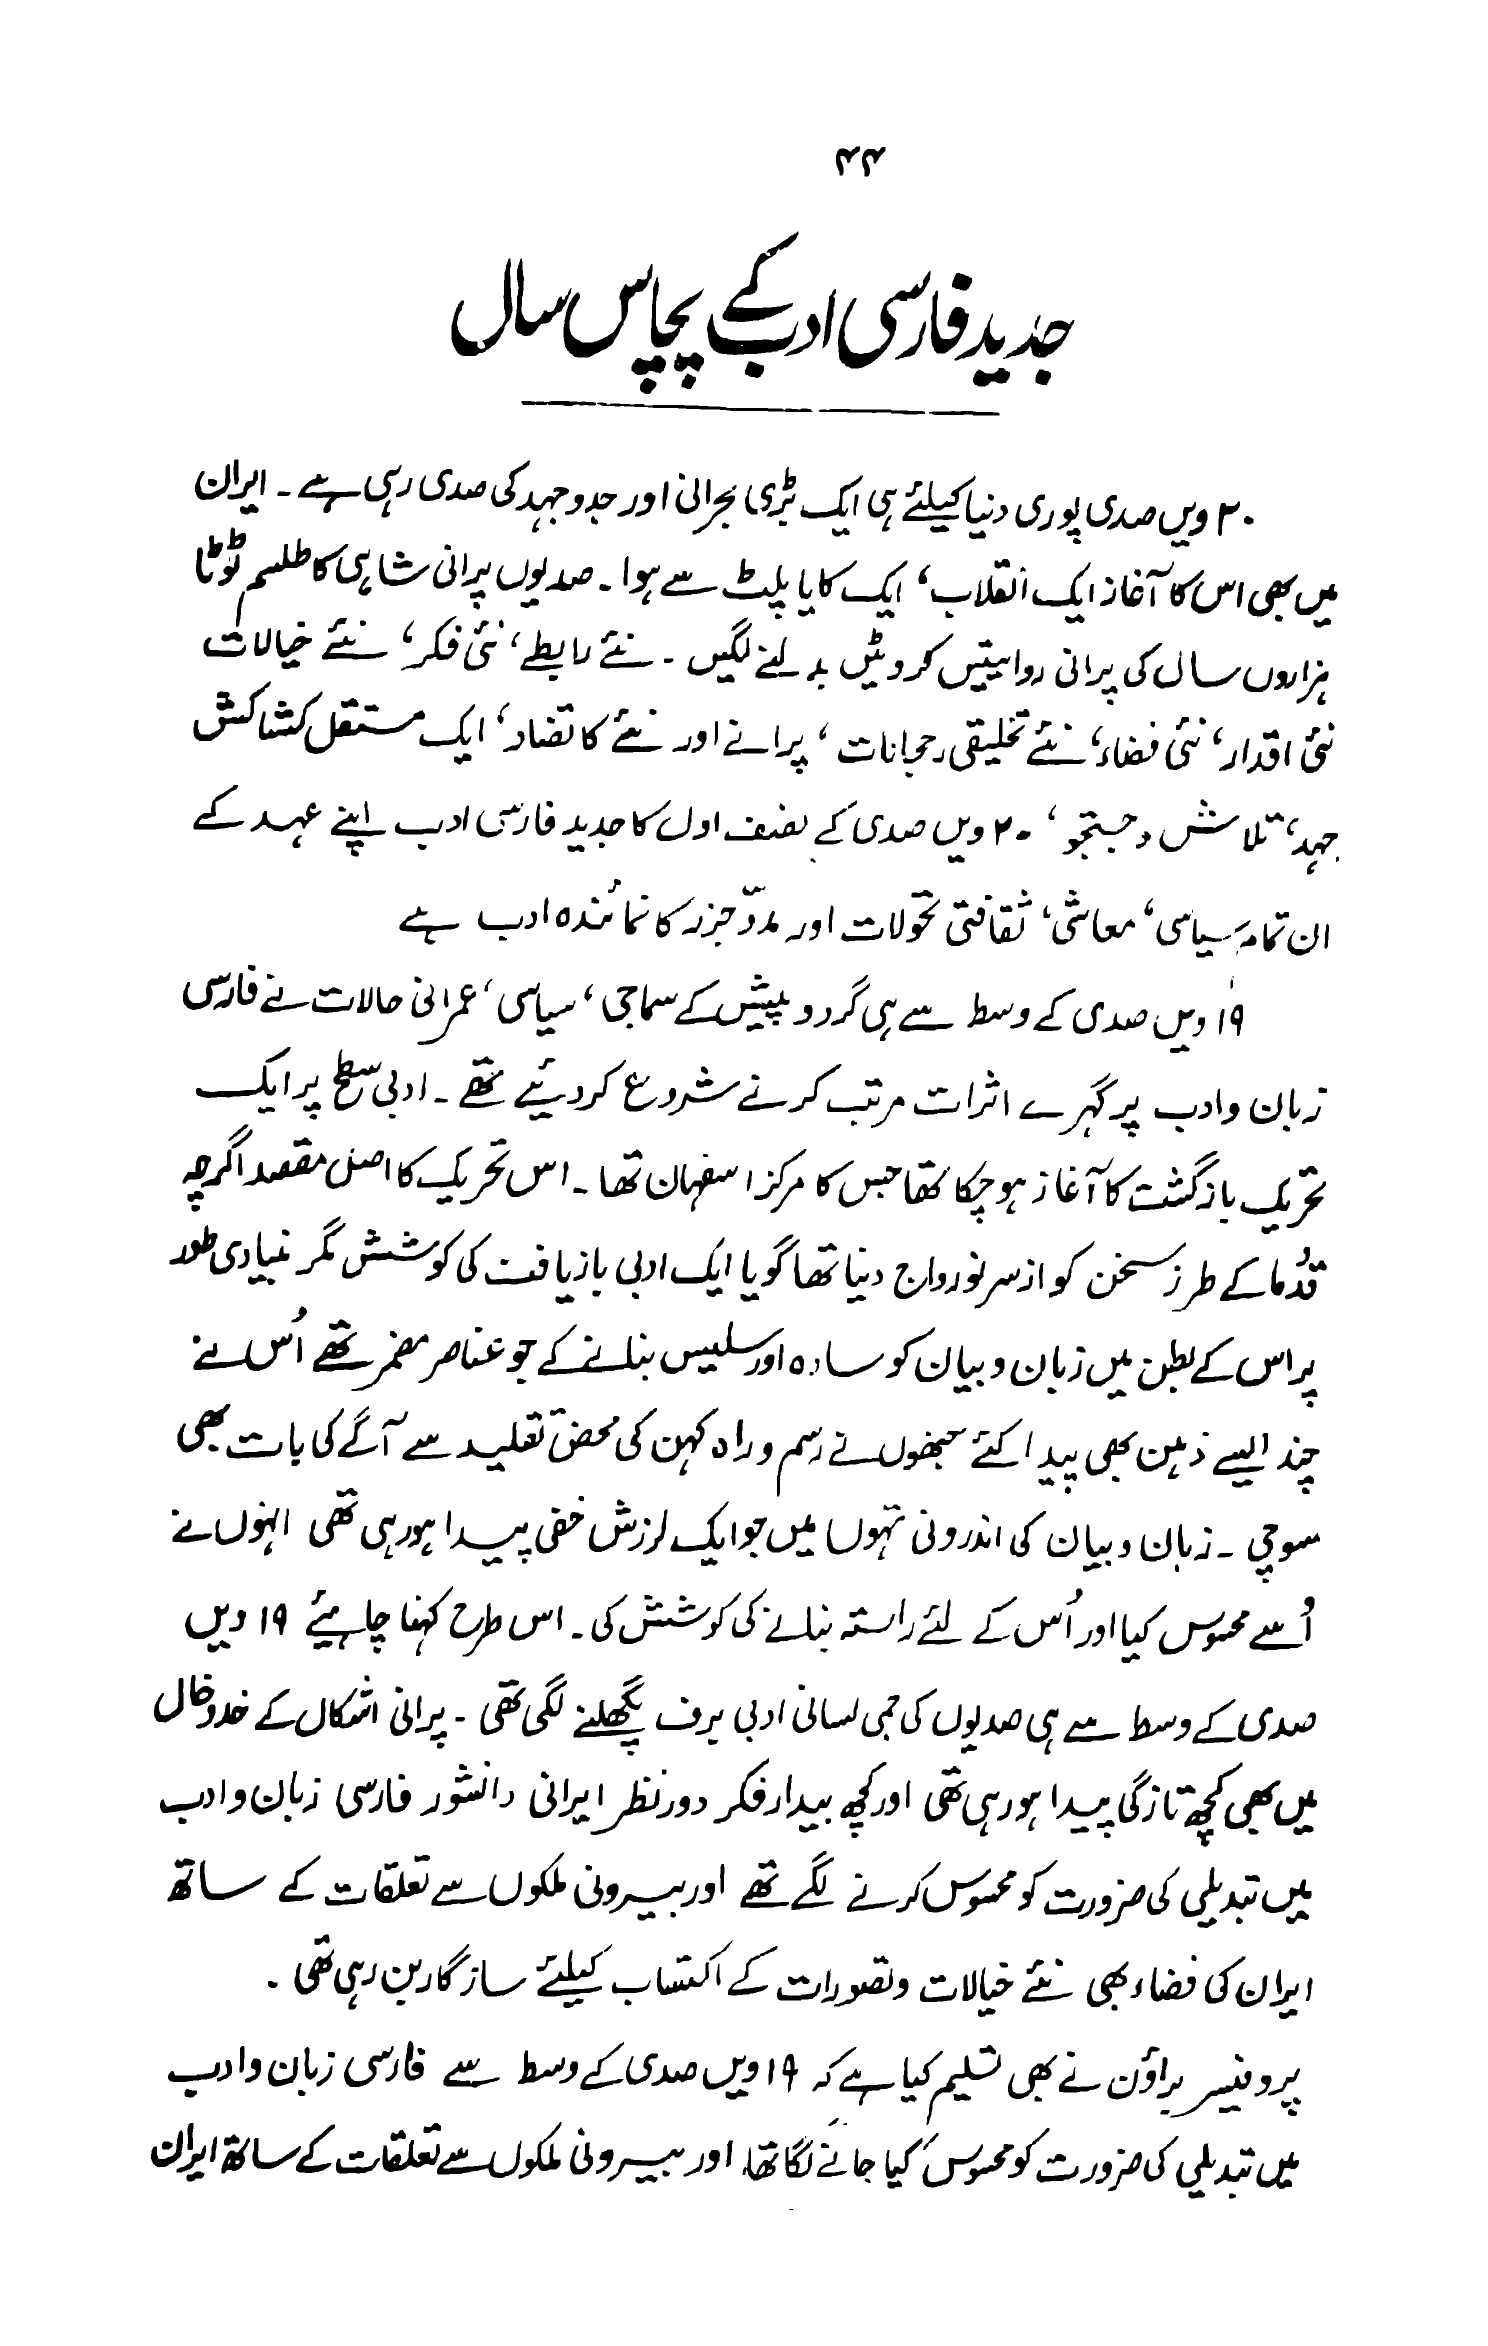 ۴۴
جدید فارسی ادب کے پچاس سال
۲۰ ویں صدی پوری دنیا کیلئے ہی ایک بڑی بحرانی اور جدوجہد کی صدی رہی ہے ۔ ایران
میں بھی اس کا آغاز ایک انقلاب، ایک کایا پلٹ سے ہوا ۔ صدیوں پرانی شاہی کا طلسم ٹوٹا
ہزاروں سال کی پرانی روایتیں کروٹیں بدلنے لگیں ۔ نئے رابطے، نئی فکر، نئے خیالات
نئی اقدار، نئی فضاء، نئے تخلیقی رحجانات، پرانے اور نئے کا تضاد، ایک مستقل کشاکش
جہد، تلاش و جستجو، ۲۰ ویں صدی کے نصف اول کا جدید فارسی ادب اپنے عہد کے
ان تمام سیاسی، معاشی، ثقافتی تحولات اور مدّ جزر کا نمائندہ ادب ہے
۱۹ ویں صدی کے وسط سے ہی گرد و پیش کے سماجی، سیاسی، عمرانی حالات نے فارسی
زبان و ادب پر گہرے اثرات مرتب کرنے شروع کردیئے تھے ۔ ادبی سطح پر ایک
تحریک بازگشت کا آغاز ہوچکا تھا جس کا مرکز اصفہان تھا ۔ اس تحریک کا اصل مقصد اگرچہ
قدُما کے طرز سخن کو از سر نو رواج دینا تھا گویا ایک ادبی بازیافت کی کوشش مگر بنیادی طور
پر اس کے بطن میں زبان و بیان کو سادہ اور سلیس بنانے کے جو عناصر مضمر تھے اُس نے
چند ایسے ذہن بھی پیدا کئے جنھوں نے رسم و راہ کہن کی محض تقلید سے آگے کی بات بھی
سوچی ۔ زبان و بیان کی اندرونی تہوں میں جو ایک لرزش خفی پیدا ہورہی تھی انہوں نے
اُسے محسوس کیا اور اُس کے لئے راستہ بنانے کی کوشش کی ۔ اس طرح کہنا چاہیئے ۱۹ ویں
صدی کے وسط سے ہی صدیوں کی جمی لسانی ادبی برف پگھلنے لگی تھی ۔ پرانی اشکال کے خدوخال
میں بھی کچھ تازگی پیدا ہو رہی تھی اور کچھ بیدار فکر دور نظر ایرانی دانشور فارسی زبان و ادب
میں تبدیلی کی ضرورت کو محسوس کرنے لگے تھے اور بیرونی ملکوں سے تعلقات کے ساتھ
ایران کی فضاء بھی نئے خیالات و تصورات کے اکتساب کیلئے سازگار بن رہی تھی ۔
پروفیسر براؤن نے بھی تسلیم کیا ہے کہ ۱۹ ویں صدی کے وسط سے فارسی زبان و ادب
میں تبدیلی کی ضرورت کو محسوس کیا جانے لگا تھا، اور بیرونی ملکوں سے تعلقات کے ساتھ ایران